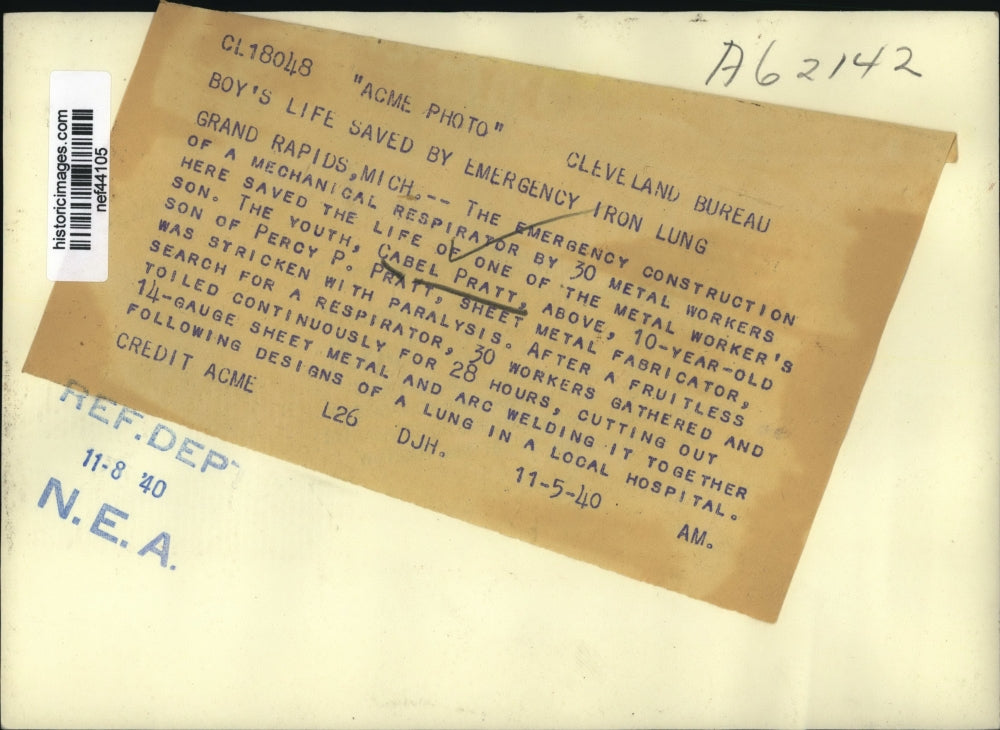 A62142
CL18048 "ACME PHOTO" CLEVELAND BUREAU
BOY'S LIFE SAVED BY EMERGENCY IRON LUNG
GRAND RAPIDS, MICH.-- THE EMERGENCY CONSTRUCTION
OF A MECHANICAL RESPIRATOR BY 30 METAL WORKERS
HERE SAVED THE LIFE OF ONE OF THE METAL WORKER'S
SON. THE YOUTH, CABEL PRATT, ABOVE, 10-YEAR-OLD
SON OF PERCY P. PRATT, SHEET METAL FABRICATOR,
WAS STRICKEN WITH PARALYSIS. AFTER A FRUITLESS
SEARCH FOR A RESPIRATOR, 30 WORKERS GATHERED AND
TOILED CONTINUOUSLY FOR 28 HOURS, CUTTING OUT
14-GAUGE SHEET METAL AND ARC WELDING IT TOGETHER
FOLLOWING DESIGNS OF A LUNG IN A LOCAL HOSPITAL.
CREDIT ACME L26 DJH. 11-5-40 AM.
historicimages.com
nef44105
REF. DEPT
11-8 '40
N.E.A.